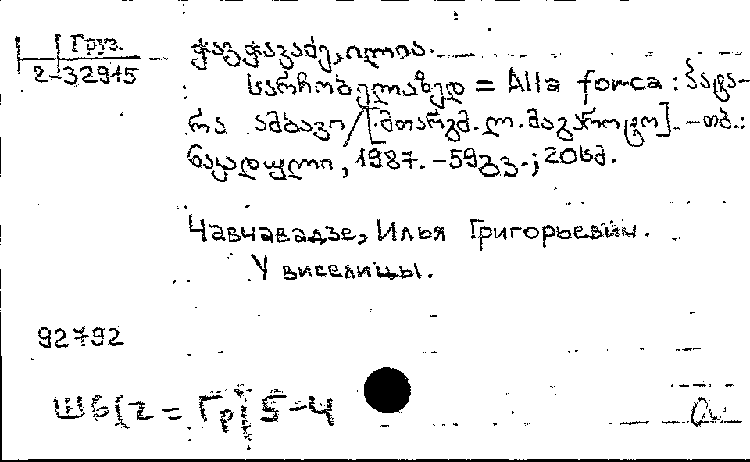 Груз.
2-32915
ჭავჭავაძე, ილია.
სარჩობელაზედ = Alla forca : პატა-
რა ამბავი / [მთარგმ. ლ. მაგაროტო]. - თბ. :
ნაკადული, 1987. - 59 გვ. ; 20 სმ.
Чавчавадзе, Илья Григорьевич.
У виселицы.
92792
Ш6(2=Гр) 5-4